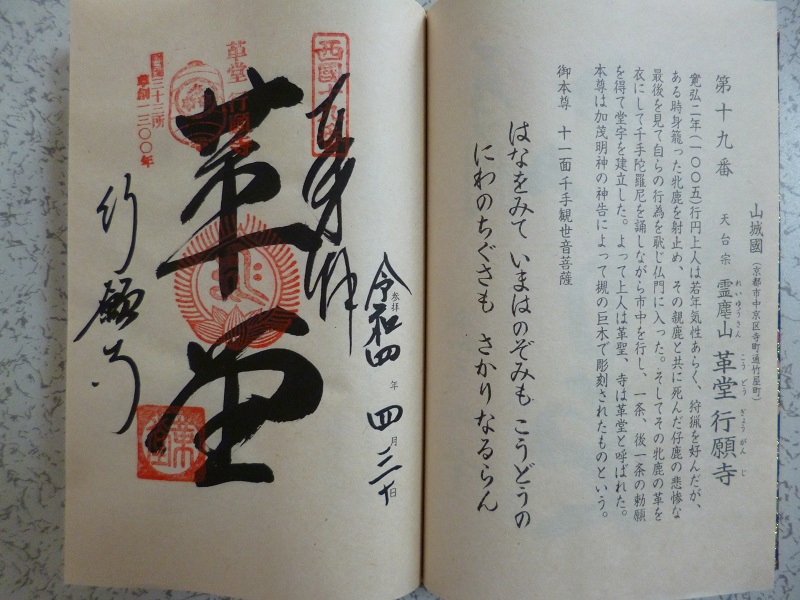 第十九番
山城國（京都市中京区寺町通竹屋町）
天台宗 霊麀山 革堂 行願寺
れいゆうさん こうどう ぎょうがんじ
寛弘二年（一〇〇五）行円上人は若年気性あらく、狩猟を好んだが、
ある時身籠った牝鹿を射止め、その親鹿と共に死んだ仔鹿の悲惨な
最後を見て自らの行為を恥じ仏門に入った。そしてその牝鹿の革を
衣にして千手陀羅尼を誦しながら市中を行し、一条、後一条の勅願
を得て堂宇を建立した。よって上人は革聖、寺は革堂と呼ばれた。
本尊は加茂明神の神告によって槻の巨木で彫刻されたものという。
御本尊 十一面千手観世音菩薩
はなをみて いまはのぞみも こうどうの
にわのちぐさも さかりなるらん
参拝
令和四年四月三十日
奉拝
革堂
行願寺
革堂 行願寺
三十三所
草創一三〇〇年